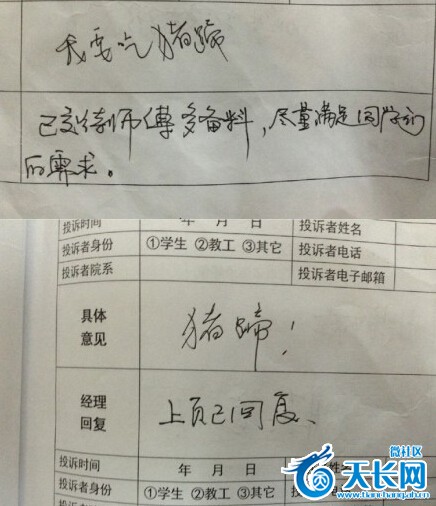 我要吃猪蹄
已交待师傅多备料，尽量满足同学们
的需求。
投诉时间 年 月 日 投诉者姓名
投诉者身份 ①学生 ②教工 ③其它 投诉者电话
投诉者院系 投诉者电子邮箱
具体
意见
猪蹄！
经理
回复
上页已回复、
投诉时间 年 月 日
投诉者身份 ①学生 ②教工 ③其它
微社区
天长网
tianchang.ah.cn